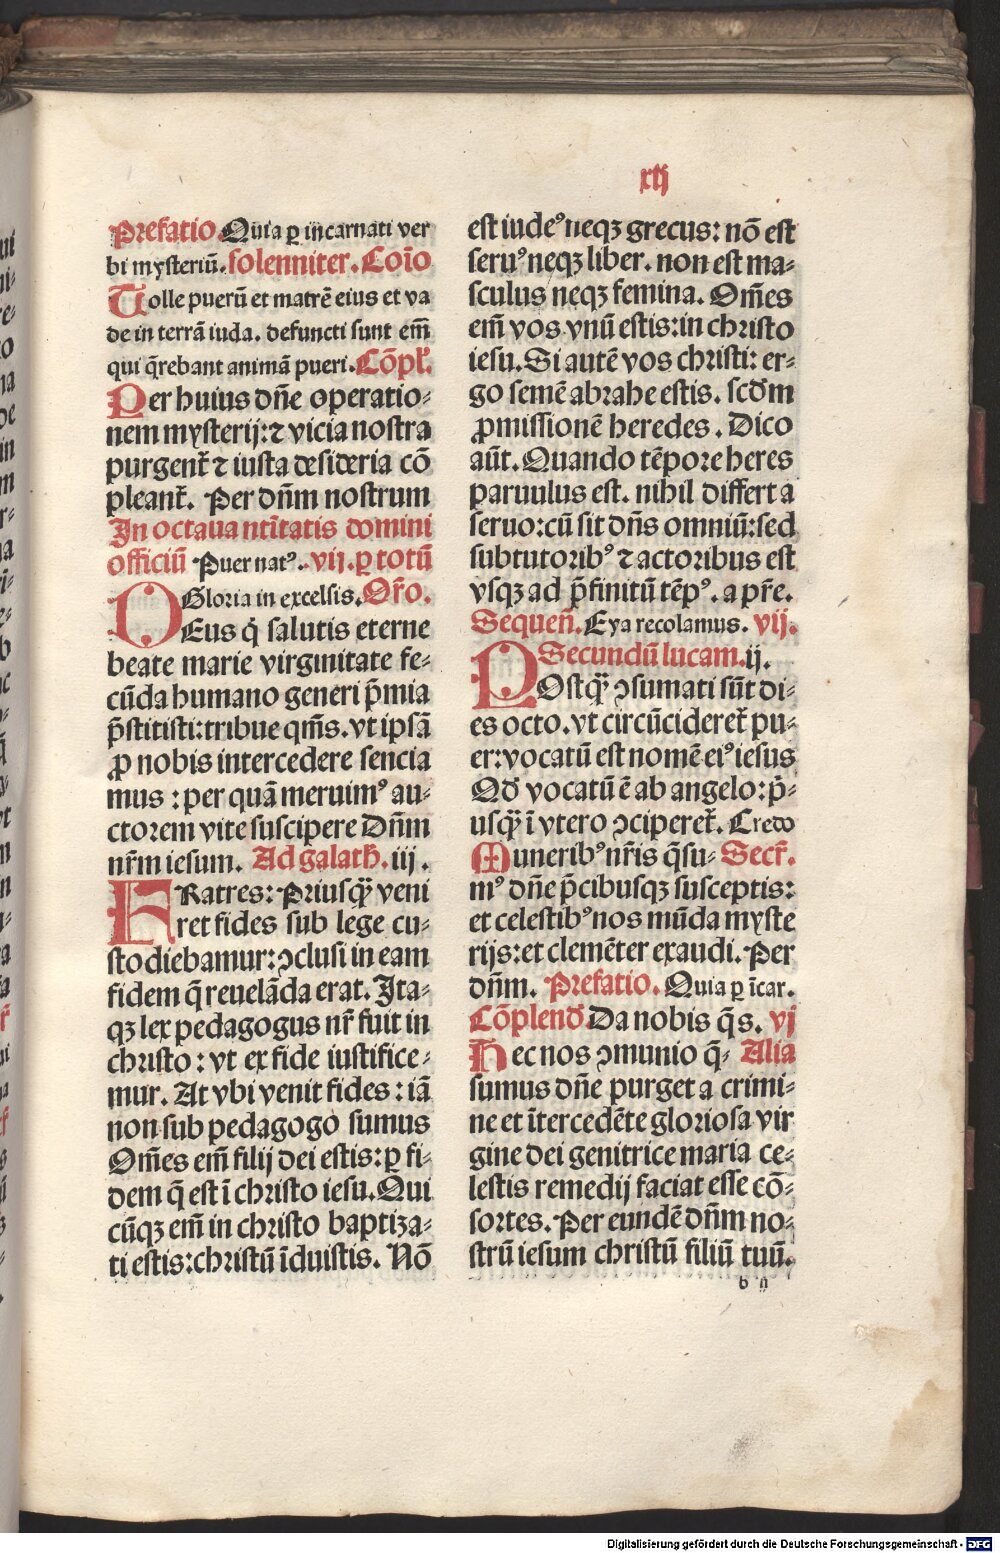 xij
Prefatio Quia ꝑ incarnati ver
bi mysteriū. solenniter. Coīo
Tolle puerū et matrē eius et va
de in terrā iuda. defuncti sunt em̄
qui q̄rebant animā pueri. Cōpl'.
Per huius dn̄e operatio⸗
nem mysterij: ⁊ vicia nostra
purgent᷑ ⁊ iusta desideria cō
pleant᷑. Per dn̄m nostrum
In octaua ntīitatis domini
officiū Puer natꝰ. vij. ꝑ totū
Gloria in excelsis. Or̄o.
DEus q̇ salutis eterne
beate marie virginitate fe⸗
cūda humano generi p̄mia
p̄stitisti: tribue qm̄s. vt ipsā
ꝓ nobis intercedere sencia
mus : per quā meruimꝰ au⸗
ctorem vite suscipere Dn̄m
nr̄m iesum. Ad galath. iij .
FRatres: Priusqꝫ veni
ret fides sub lege cu⸗
stodiebamur: ↄclusi in eam
fidem q̄ reuelāda erat. Ita⸗
qꝫ lex pedagogus nr̄ fuit in
christo : vt ex fide iustifice⸗
mur. At vbi venit fides : iā
non sub pedagogo sumus
Om̄es em̄ filij dei estis: ꝑ fi⸗
dem q̄ est ī christo iesu. Qui
cūqꝫ em̄ in christo baptiza⸗
ti estis: christū īduistis. Nō
est iudeꝰ neqꝫ grecus: nō est
seruꝰ neqꝫ liber. non est ma⸗
sculus neqꝫ femina. Om̄es
em̄ vos vnū estis: in christo
iesu. Si autē vos christi: er⸗
go semē abrahe estis. scd̄m
ꝓmissionē heredes . Dico
aūt. Quando tēpore heres
paruulus est. nihil differt a
seruo: cū sit dn̄s omniū: sed
sub tutoribꝰ ⁊ actoribus est
vsqꝫ ad p̄finitū tēpꝰ. a pr̄e.
Sequen̄. Eya recolamus. vij.
Secundū lucam. ij.
POstqꝫ ↄsumati sūt di⸗
es octo. vt circūcideret᷑ pu⸗
er: vocatū est nomē eiꝰ iesus
Qd̄ vocatū ē ab angelo: p̄⸗
usqꝫ ī vtero ↄciperet᷑. Credo
Muneribꝰ nr̄is q̄su⸗ Secr̄.
mꝰ dn̄e p̄cibusqꝫ susceptis:
et celestibꝰ nos mūda myste
rijs: et clemēter exaudi. Per
dn̄m. Prefatio. Quia ꝑ īcar.
Cōplend̄. Da nobis q̄s. vj
Hec nos ↄmunio q̄⸗ Alia
sumus dn̄e purget a crimi⸗
ne et ītercedēte gloriosa vir
gine dei genitrice maria ce⸗
lestis remedij faciat esse cō⸗
sortes. Per eundē dn̄m no⸗
strū iesum christū filiū tuū.
b ij
Digitalisierung gefördert durch die Deutsche Forschungsgemeinschaft - DFG